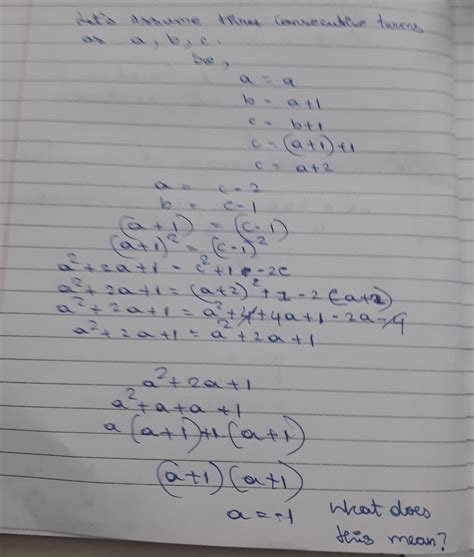 Let's assume three consecutive terms
as a, b, c.
So,
a = a
b = a+1
c = b+1
c = (a+1)+1
c = a+2
a = c-2
b = c-1
(a+1) = (c-1)
(a+1)² = (c-1)²
a²+2a+1 = c²+1-2c
a²+2a+1 = (a+2)²+1-2(a+2)
a²+2a+1 = a²+4+4a+1-2a-4
a²+2a+1 = a²+2a+1
a²+2a+1
a²+a+a+1
a(a+1)+1(a+1)
(a+1)(a+1)
a = -1 What does
this mean?